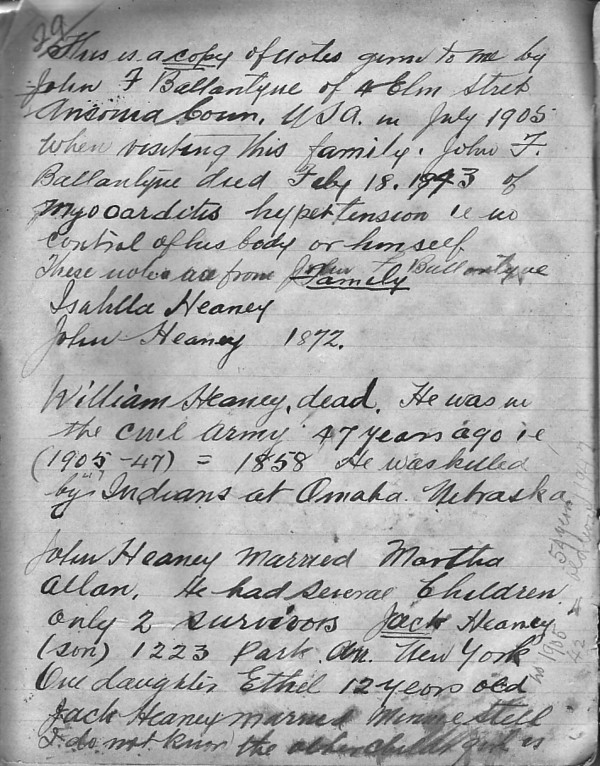 29
This is a copy of notes given to me by
John F Ballantyne of 4 Elm Street
Ansonia Conn. USA. in July 1905
when visiting this family. John F.
Ballantyne died Feby 18. 1943 of
Myocarditis hypertension ie no
control of his body or himself
These notes are from John F Ballantyne
Family
Isabella Heaney
John Heaney 1872.
William Heaney, dead. He was in
the Civil Army 47 years ago ie
(1905-47) = 1858 He was killed
by Indians at Omaha Nebraska
John Heaney married Martha
Allan. He had several Children
only 2 survivors Jack Heaney
(son) 1223 Park Av. New York
One daughter Ethel 12 years old
Jack Heaney married Minnie Stell
I do not know the other child girl is
in 1905
42
54 years
old in 1947